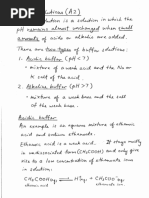 solutions (A2)
solution is a solution in which the
pH remains almost unchanged when small
amounts of acids or alkalis are added.
There are two types of buffer solutions:
1. Acidic buffer (pH < 7)
- mixture of a weak acid and the Na or
K salt of the acid.
2. Alkaline buffer (pH > 7)
- mixture of a weak base and the
salt of the weak base.
Acidic buffer
An example is an aqueous mixture of ethanoic
acid and sodium ethanoate.
Ethanoic acid is a weak acid. It stays mostly
in undissociated form (CH3COOH) and only give
rise to a low concentration of ethanoate ions
in solution.
CH3COOH(aq) ⇌ H+(aq) + CH3COO-(aq)
ethanoic acid ethanoate ions